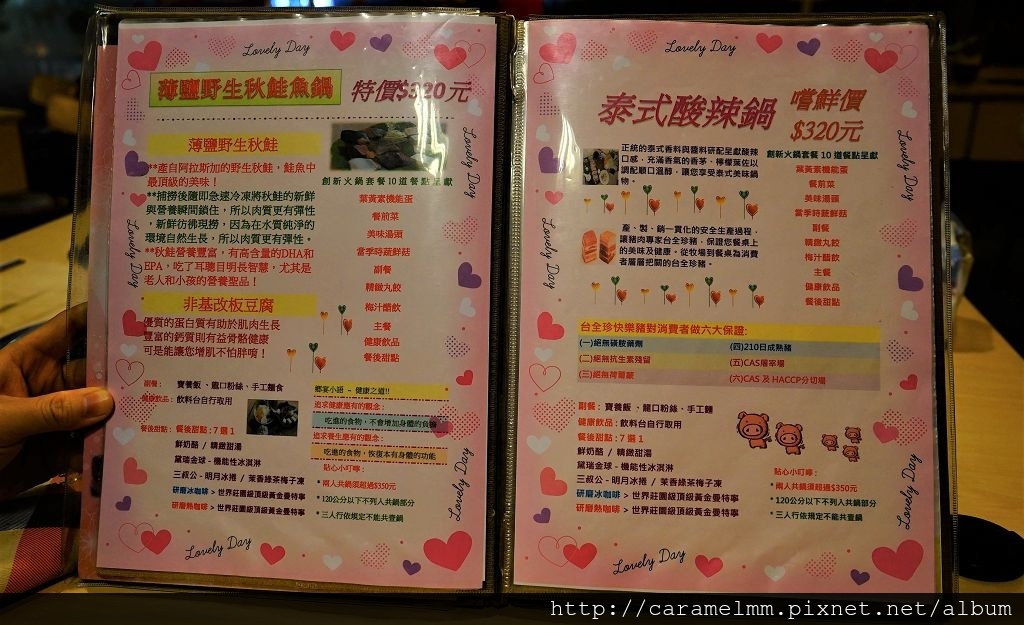 Lovely Day
薄鹽野生秋鮭魚鍋 特價$320元
薄鹽野生秋鮭
**產自阿拉斯加的野生秋鮭，鮭魚中
最頂級的美味！
**捕撈後隨即急速冷凍將秋鮭的新鮮
與營養瞬間鎖住，所以肉質更有彈性
，新鮮彷彿現撈，因為在水質純淨的
環境自然生長，所以肉質更有彈性。
**秋鮭營養豐富，有高含量的DHA和
EPA，吃了耳聰目明長智慧，尤其是
老人和小孩的營養聖品！
非基改板豆腐
優質的蛋白質有助於肌肉生長
豐富的鈣質則有益骨骼健康
可是能讓您增肌不怕胖唷！
創新火鍋套餐10道餐點呈獻
葉黃素機能蛋
餐前菜
美味湯頭
當季時蔬鮮菇
副餐
精緻丸餃
梅汁醋飲
主餐
健康飲品
餐後甜點
副餐： 寶養飯、龍口粉絲、手工麵食
健康飲品：飲料台自行取用
餐後甜點： 餐後甜點：7 選 1
鮮奶酪 / 精緻甜湯
黛瑞金球 - 機能性冰淇淋
三叔公 - 明月冰捲 / 茉香綠茶梅子凍
研磨冰咖啡 > 世界莊園級頂級黃金曼特寧
研磨熱咖啡 > 世界莊園級頂級黃金曼特寧
鄉宴小語 ~ 健康之道!!
追求健康應有的觀念：
吃進的食物，不會增加身體的負擔
追求養生應有的觀念：
吃進的食物，恢復本有身體的功能
貼心小叮嚀：
* 兩人共鍋須超過$350元
* 120公分以下不列入共鍋部分
* 三人行依規定不能共壹鍋
Lovely Day
Lovely Day
Lovely Day
Lovely Day
Lovely Day
泰式酸辣鍋 嚐鮮價
$320元
正統的泰式香料與醬料研配呈獻酸辣
口感，充滿香氣的香茅，檸檬葉佐以
調配順口溫醇，讓您享受泰式美味鍋
物。
產、製、銷一貫化的安全生產過程，
讓豬肉專家台全珍豬，保證您餐桌上
的美味及健康。從牧場到餐桌為消費
者層層把關的台全珍豬。
創新火鍋套餐 10 道餐點呈獻
葉黃素機能蛋
餐前菜
美味湯頭
當季時蔬鮮菇
副餐
精緻丸餃
梅汁醋飲
主餐
健康飲品
餐後甜點
台全珍快樂豬對消費者做六大保證:
(一)絕無磺胺藥劑 (四)210日成熟豬
(二)絕無抗生素殘留 (五)CAS屠宰場
(三)絕無荷爾蒙 (六)CAS 及 HACCP分切場
副餐： 寶養飯、龍口粉絲、手工麵
健康飲品：飲料台自行取用
餐後甜點：7 選 1
鮮奶酪 / 精緻甜湯
黛瑞金球 - 機能性冰淇淋
三叔公 - 明月冰捲 / 茉香綠茶梅子凍
研磨冰咖啡 > 世界莊園級頂級黃金曼特寧
研磨熱咖啡 > 世界莊園級頂級黃金曼特寧
貼心小叮嚀：
* 兩人共鍋須超過$350元
* 120公分以下不列入共鍋部分
* 三人行依規定不能共壹鍋
Lovely Day
Lovely Day
Lovely Day
Lovely Day
http://caramelmm.pixnet.net/album